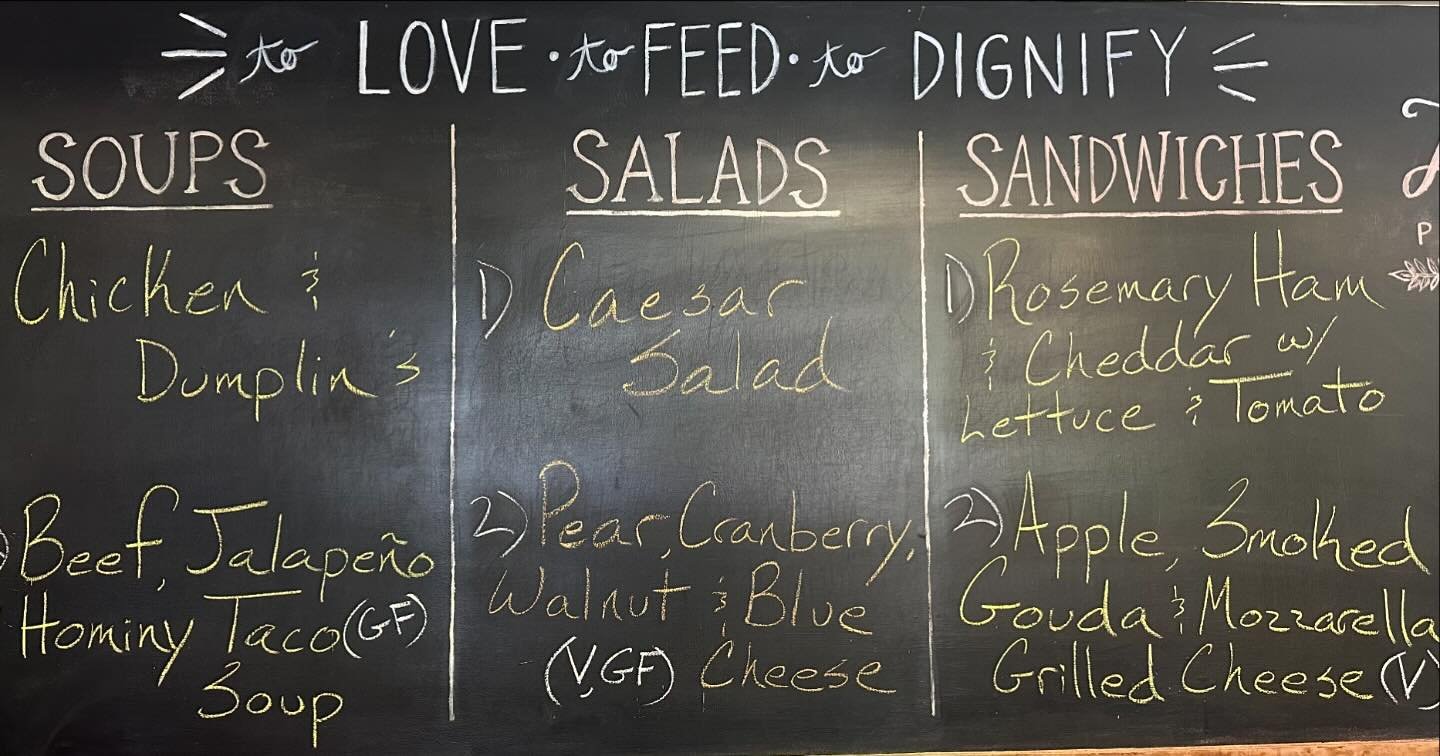 to LOVE · to FEED · to DIGNIFY
SOUPS
Chicken &
Dumplin's
) Beef, Jalapeño
Hominy Taco (GF)
Soup
SALADS
1) Caesar
Salad
2) Pear, Cranberry,
Walnut & Blue
(V, GF) Cheese
SANDWICHES
1) Rosemary Ham
& Cheddar w/
Lettuce & Tomato
2) Apple, Smoked
Gouda & Mozzarella
Grilled Cheese (V)
P